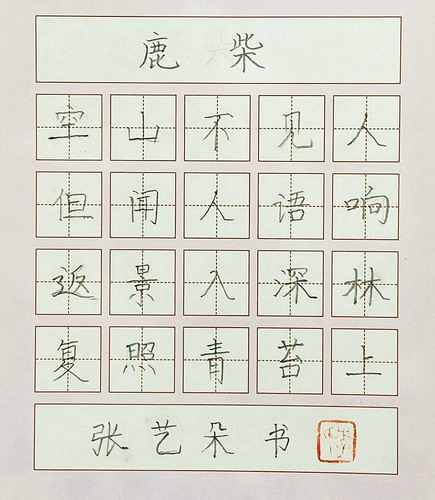 鹿柴
空山不见人
但闻人语响
返景入深林
复照青苔上
张艺朵书